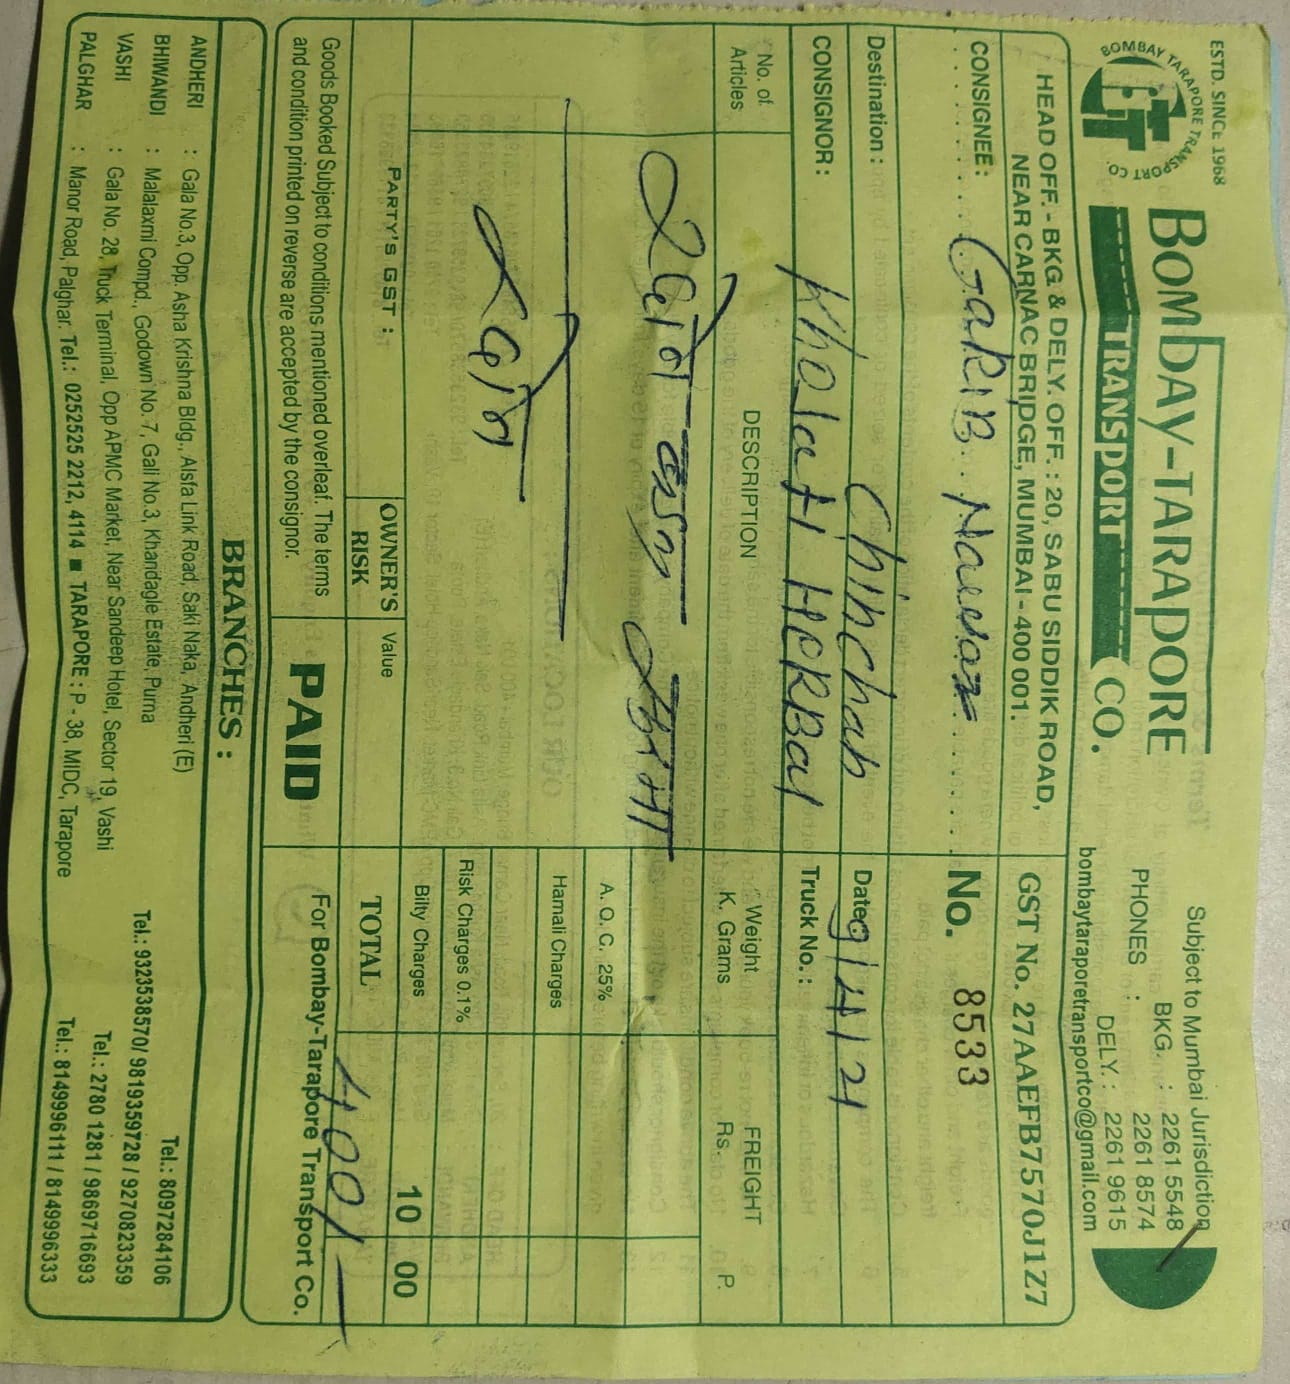 ESTD. SINCE 1968
BOMBAY TARAPORE TRANSPORT CO.
BTT
BOMBAY-TARAPORE
TRANSPORT CO.
Subject to Mumbai Jurisdiction
PHONES : BKG. : 2261 5548
2261 8574
DELY. : 2261 9615
bombaytaraporetransportco@gmail.com
HEAD OFF. - BKG. & DELY. OFF. : 20, SABU SIDDIK ROAD,
NEAR CARNAC BRIDGE, MUMBAI - 400 001.
GST No. 27AAEFB7570J1Z7
CONSIGNEE: GaRIB Nawaz
No. 8533
Destination : Chinchan
Date 9/4/21
CONSIGNOR: KholaHI HERBal
Truck No. :
No. of Articles
DESCRIPTION
Weight K. Grams
FREIGHT
Rs. P.
A. O. C. 25%
Hamali Charges
Risk Charges 0.1%
Bilty Charges 10 00
PARTY'S GST :
OWNER'S RISK
Value
TOTAL 400/-
Goods Booked Subject to conditions mentioned overleaf. The terms
and condition printed on reverse are accepted by the consignor.
PAID
For Bombay-Tarapore Transport Co.
BRANCHES :
ANDHERI : Gala No.3, Opp. Asha Krishna Bldg., Alsfa Link Road, Saki Naka, Andheri (E) Tel.: 8097284106
BHIWANDI : Malalaxmi Compd., Godown No. 7, Gali No.3, Khandagle Estate, Purna Tel.: 9323538570/ 9819359728 / 9270823359
VASHI : Gala No. 28, Truck Terminal, Opp APMC Market, Near Sandeep Hotel, Sector 19, Vashi Tel.: 2780 1281 / 9869716693
PALGHAR : Manor Road, Palghar. Tel.: 0252525 2212, 4114 ■ TARAPORE : P - 38, MIDC, Tarapore Tel.: 8149996111 / 8149996333